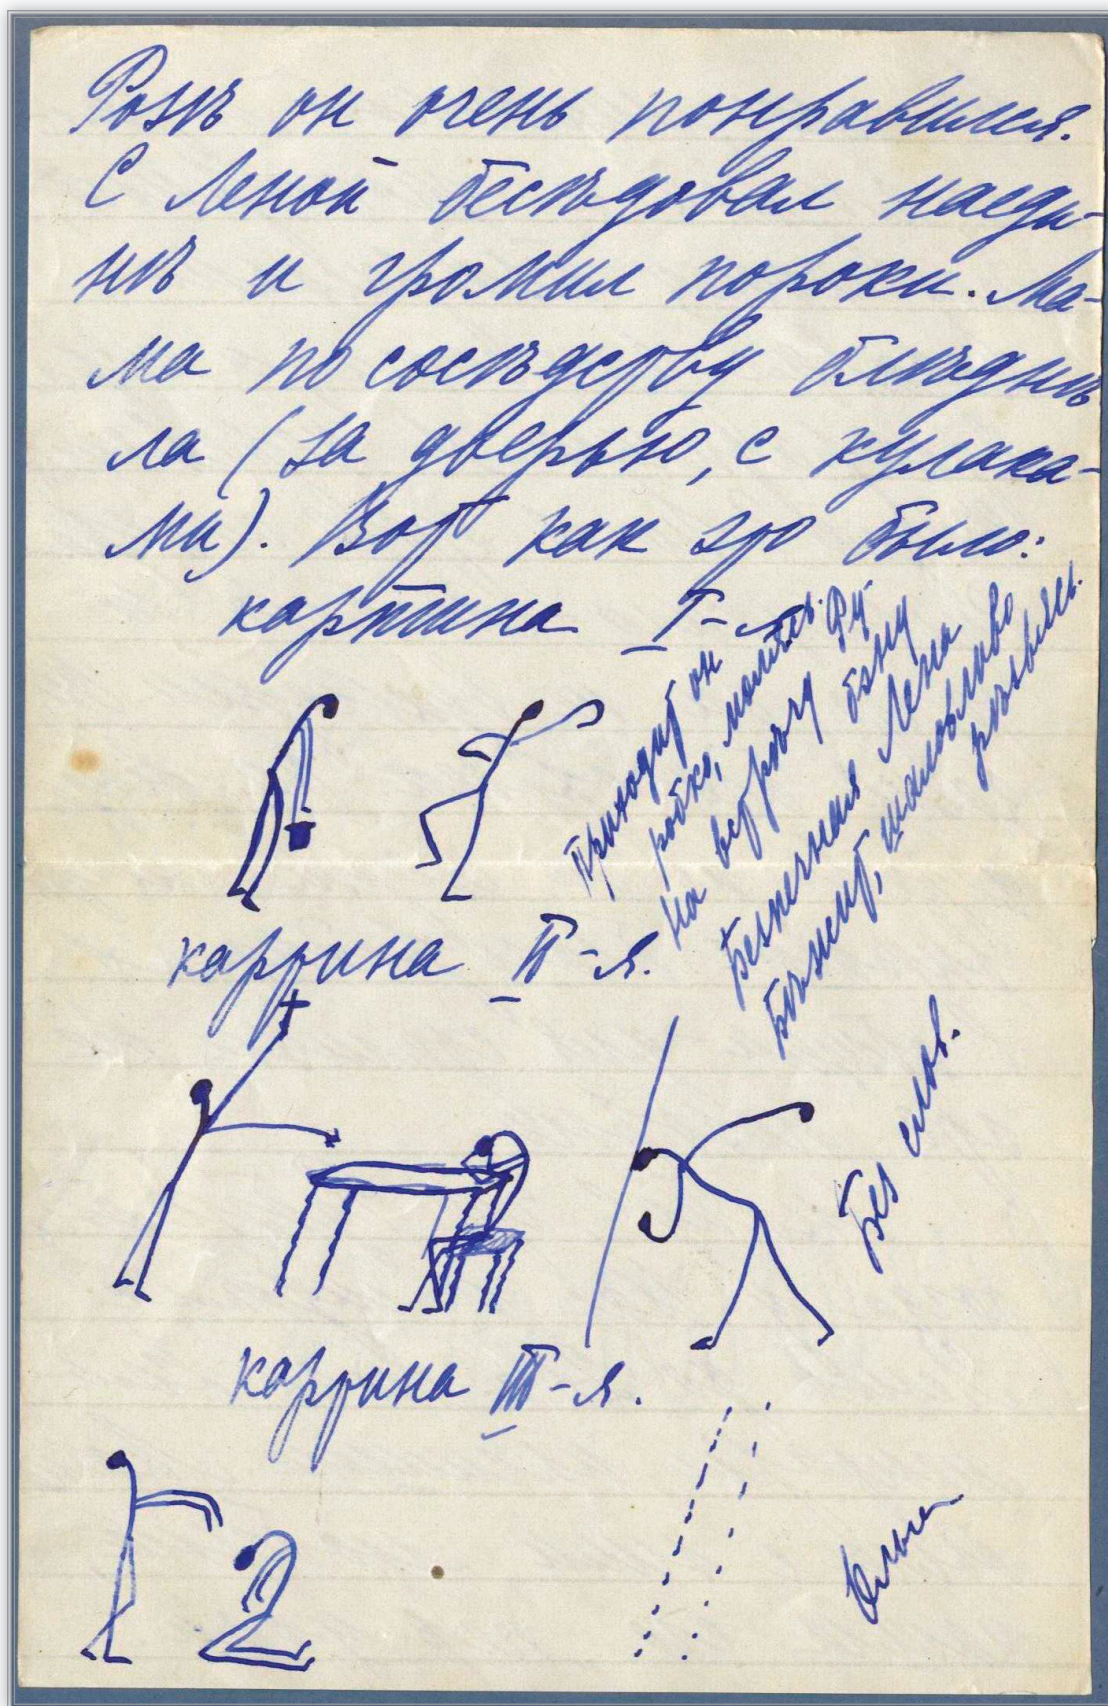 Розѣ он очень понравился.
С Леной бесѣдовал наеди-
нѣ и громил пороки. Ма-
ма по сосѣдству блѣднѣ
ла (за дверью, с кулака-
ми). Вот как это было:
картина I-я.
Приходит он
робко, молясь.
На встрѣчу Фу-
бэну
Безпечная Лена
Бѣжит, шаловливо
рѣзвясь.
картина II-я.
Без слов.
картина III-я.